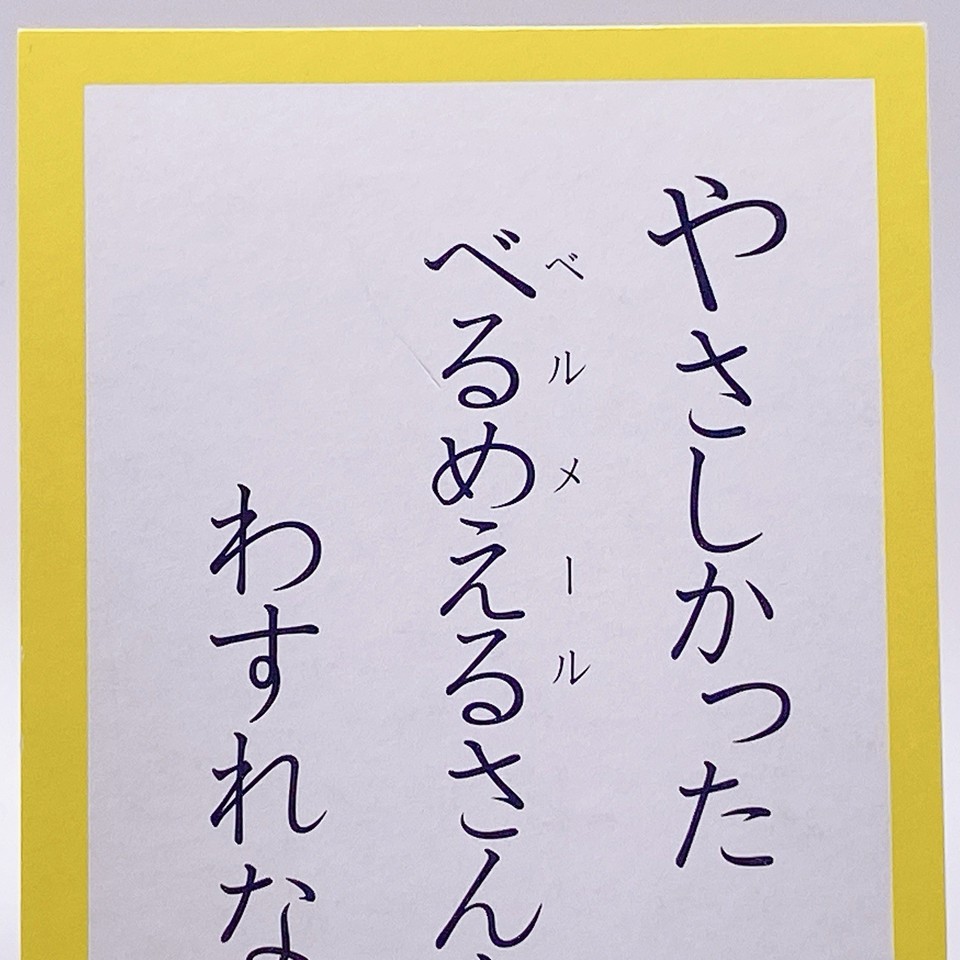 やさしかった
べるめえるさん
ベルメール
わすれな